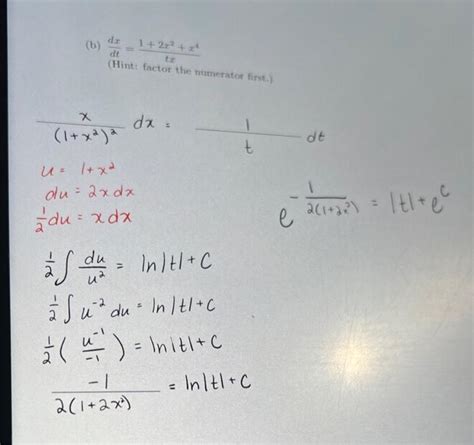 (b) dx/dt = (1 + 2x² + x⁴)/(tx)
(Hint: factor the numerator first.)
x/(1+x²)² dx = 1/t dt
u = 1+x²
du = 2x dx
½du = x dx
½ ∫ du/u² = ln|t| + C
½ ∫ u⁻² du = ln|t| + C
½ (u⁻¹/-1) = ln|t| + C
-1/(2(1+2x²)) = ln|t| + C
e^(-1/(2(1+2x²))) = |t| + e^C